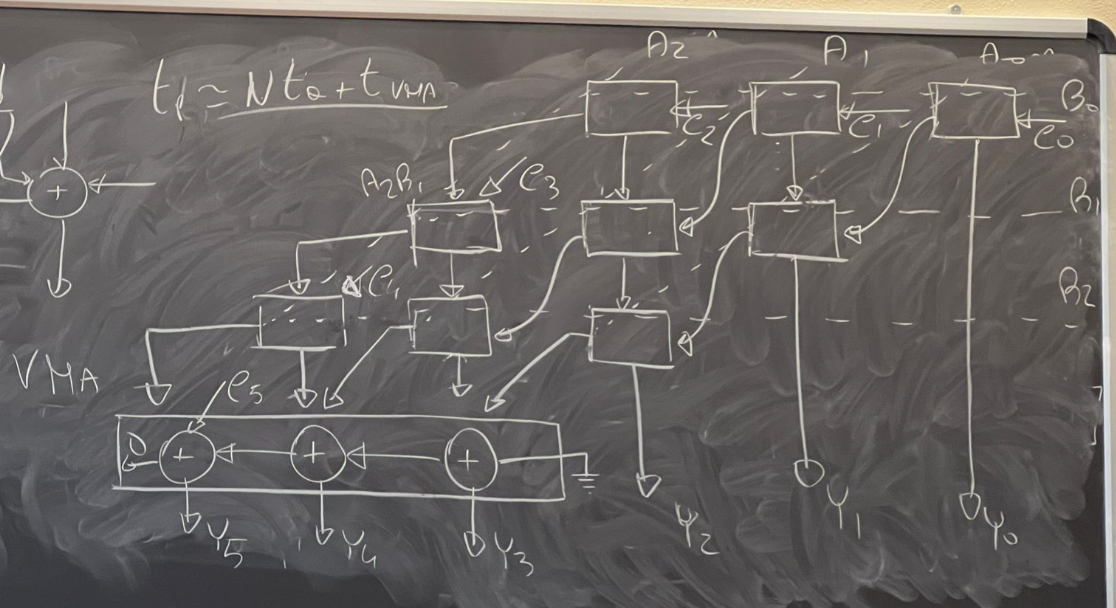 t_p ≃ N t_a + t_VMA
A2 A1 A0
B0
C2 C1 C0
A2B1 C3
B1
C4
B2
VMA
C5
0 + + +
+
Y5 Y4 Y3 Y2 Y1 Y0